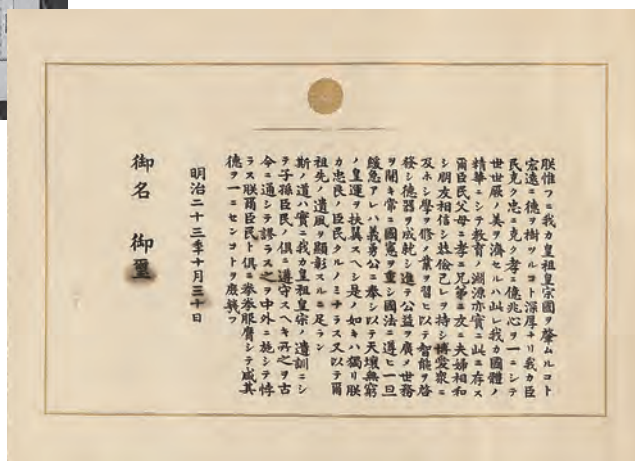 朕惟フニ我カ皇祖皇宗國ヲ肇ムルコト
宏遠ニ德ヲ樹ツルコト深厚ナリ我カ臣
民克ク忠ニ克ク孝ニ億兆心ヲ一ニシテ
世世厥ノ美ヲ濟セルハ此レ我カ國體ノ
精華ニシテ教育ノ淵源亦實ニ此ニ存ス
爾臣民父母ニ孝ニ兄弟ニ友ニ夫婦相和
シ朋友相信シ恭儉己レヲ持シ博愛衆ニ
及ホシ學ヲ修メ業ヲ習ヒ以テ智能ヲ啓
發シ德器ヲ成就シ進テ公益ヲ廣メ世務
ヲ開キ常ニ國憲ヲ重シ國法ニ遵ヒ一旦
緩急アレハ義勇公ニ奉シ以テ天壤無窮
ノ皇運ヲ扶翼スヘシ是ノ如キハ獨リ朕
カ忠良ノ臣民タルノミナラス又以テ爾
祖先ノ遺風ヲ顯彰スルニ足ラン
斯ノ道ハ實ニ我カ皇祖皇宗ノ遺訓ニシ
テ子孫臣民ノ俱ニ遵守スヘキ所之ヲ古
今ニ通シテ謬ラス之ヲ中外ニ施シテ悖
ラス朕爾臣民ト俱ニ拳拳服膺シテ咸其
德ヲ一ニセンコトヲ庶幾フ
明治二十三秊十月三十日
御名 御璽